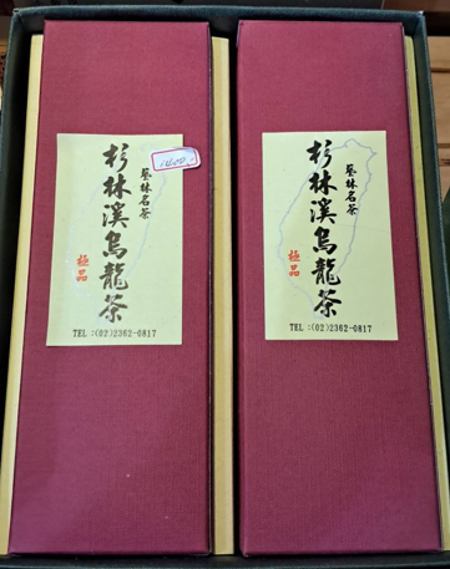 藝林名茶
杉林溪烏龍茶
極品
TEL:(02)2362-0817
1400.-
藝林名茶
杉林溪烏龍茶
極品
TEL:(02)2362-0817